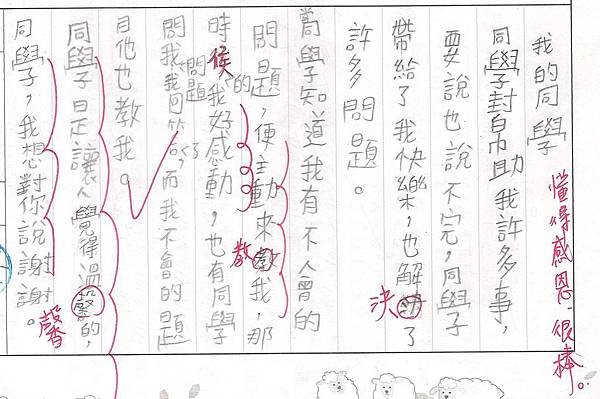 懂得感恩，很棒。
我的同學
同學幫助我許多事，
要說也說不完，同學
帶給了我快樂，也解決了
許多問題。
當同學知道我有不會的
問題，便主動來教我，那
時候的我好感動，也有同學
問我問題我回答了，而我不會的題
目他也教我。
同學是讓人覺得溫馨的，
同學，我想對你說謝謝。
決
教
馨